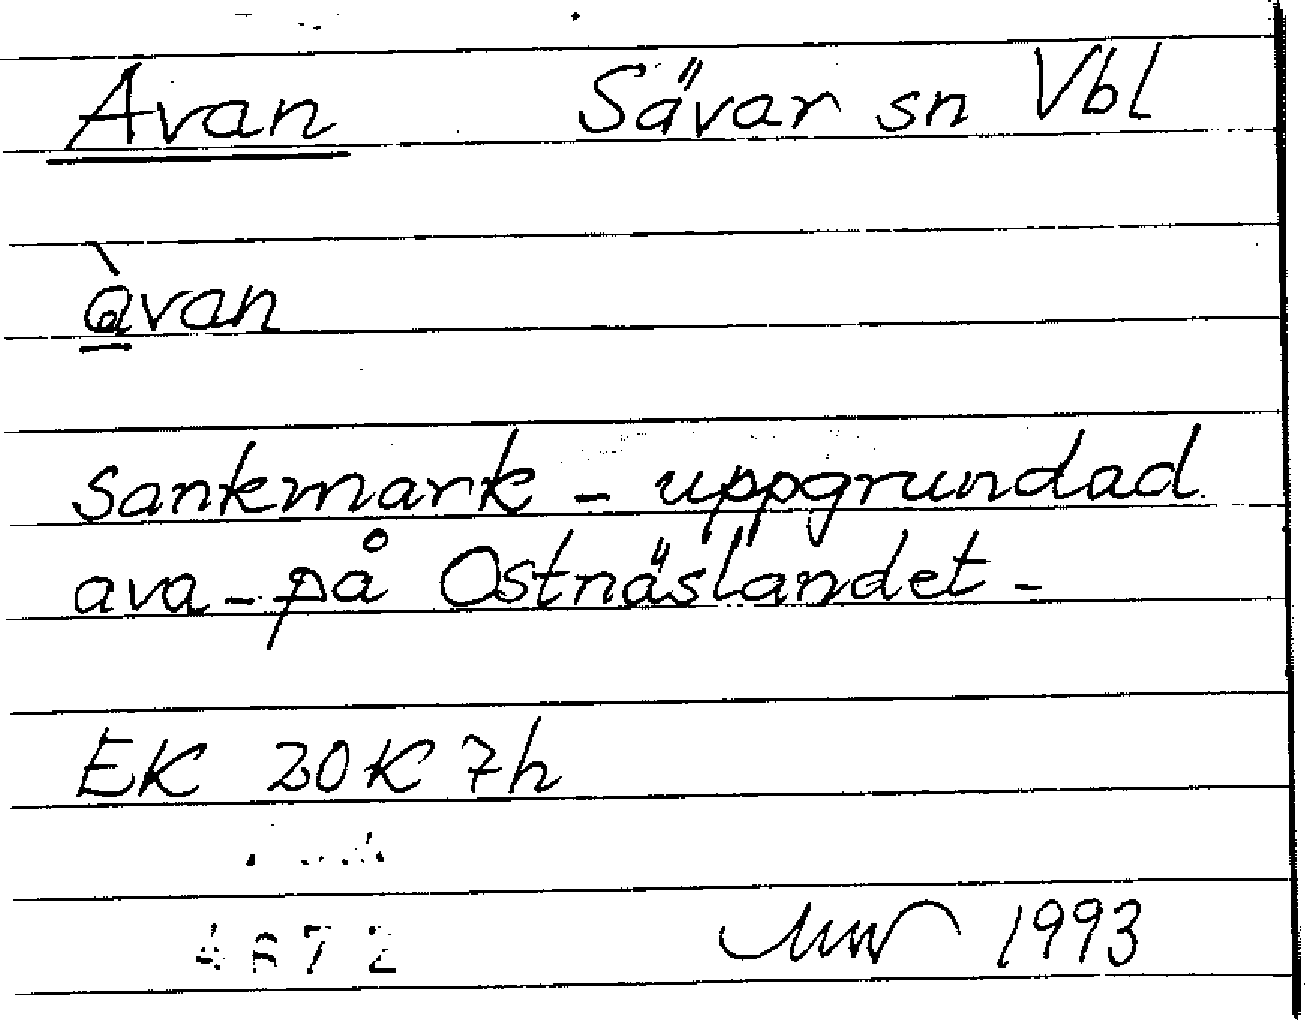 Avan Sävar sn Vbl
àvan
sankmark – uppgrundad
ava – på Ostnäslandet –
EK 20K 7h
4672
1993